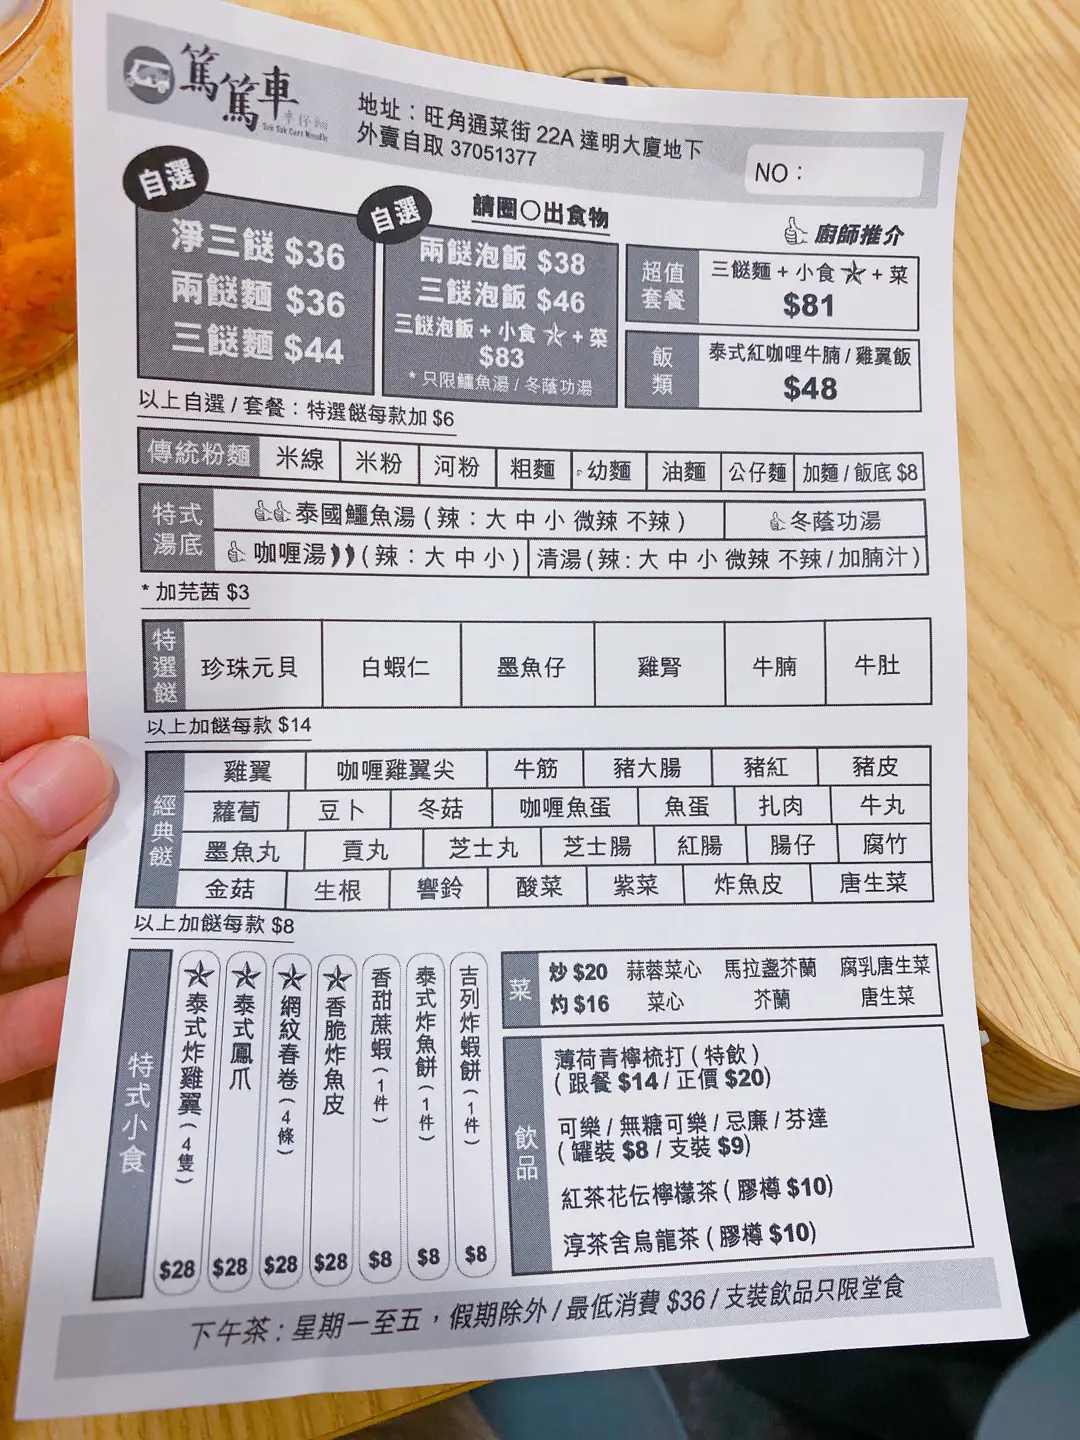 篤篤車
車仔麵
Tuk Tuk Cart Noodle
地址：旺角通菜街 22A 達明大廈地下
外賣自取 37051377
NO：
自選
淨三餸 $36
兩餸麵 $36
三餸麵 $44
自選
請圈〇出食物
兩餸泡飯 $38
三餸泡飯 $46
三餸泡飯 + 小食 ★ + 菜
$83
* 只限鱷魚湯 / 冬蔭功湯
廚師推介
超值套餐
三餸麵 + 小食 ★ + 菜
$81
飯類
泰式紅咖哩牛腩 / 雞翼飯
$48
以上自選 / 套餐：特選餸每款加 $6
傳統粉麵 米線 米粉 河粉 粗麵 幼麵 油麵 公仔麵 加麵 / 飯底 $8
特式湯底
泰國鱷魚湯 ( 辣：大 中 小 微辣 不辣 ) 冬蔭功湯
咖喱湯 ( 辣：大 中 小 ) 清湯 ( 辣: 大 中 小 微辣 不辣 / 加腩汁 )
* 加芫茜 $3
特選餸 珍珠元貝 白蝦仁 墨魚仔 雞腎 牛腩 牛肚
以上加餸每款 $14
經典餸
雞翼 咖喱雞翼尖 牛筋 豬大腸 豬紅 豬皮
蘿蔔 豆卜 冬菇 咖喱魚蛋 魚蛋 扎肉 牛丸
墨魚丸 貢丸 芝士丸 芝士腸 紅腸 腸仔 腐竹
金菇 生根 響鈴 酸菜 紫菜 炸魚皮 唐生菜
以上加餸每款 $8
特式小食
★泰式炸雞翼 ( 4隻 ) $28
★泰式鳳爪 $28
★網紋春卷 ( 4條 ) $28
★香脆炸魚皮 $28
香甜蔗蝦 ( 1件 ) $8
泰式炸魚餅 ( 1件 ) $8
吉列炸蝦餅 ( 1件 ) $8
菜
炒 $20 蒜蓉菜心 馬拉盞芥蘭 腐乳唐生菜
灼 $16 菜心 芥蘭 唐生菜
飲品
薄荷青檸梳打 ( 特飲 )
( 跟餐 $14 / 正價 $20)
可樂 / 無糖可樂 / 忌廉 / 芬達
( 罐裝 $8 / 支裝 $9)
紅茶花伝檸檬茶 ( 膠樽 $10)
淳茶舍烏龍茶 ( 膠樽 $10)
下午茶 : 星期一至五，假期除外 / 最低消費 $36 / 支裝飲品只限堂食